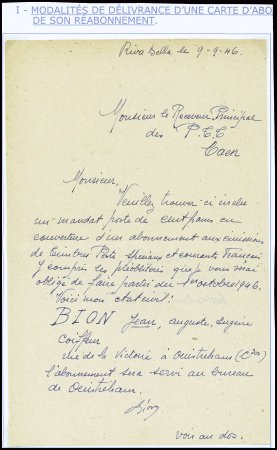 I - MODALITÉS DE DÉLIVRANCE D'UNE CARTE D'ABO
DE SON RÉABONNEMENT.
Riva Bella le 9-9-46.
Monsieur le Receveur Principal
des P.T.T
Caen
Monsieur,
Veuillez trouver ci inclus
un mandat poste de cent francs en
couverture d'un abonnement aux émissions
de Timbres Poste spéciaux et courants Français
y compris les que je vous serai
obligé de faire partir du 1er octobre 1946.
Voici mon état civil:
BION Jean, auguste, eugène
coiffeur
rue de la Victoire à Ouistreham (C)
l'abonnement sera servi au bureau
de Ouistreham.
Bion
voir au dos.